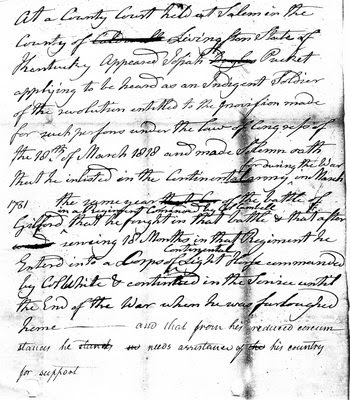 At a County Court held at Salem in the
County of Livingston State of
Kentucky Appeared Josiah Pucket
applying to be heard as an Indigent Soldier
of the revolution entitled to the provision made
for such persons under the law of Congress of
the 18th of March 1818 and made Solemn oath
or during the War
that he enlisted in the Continental army in March
1781 the same year of the battle of
in a Regiment Commanded by
Gilford, that he fought in that battle & that after
serving 18 Months in that Regiment he
Continental
Enterd into a Corps of Light Horse commanded
by Col White & continued in the Service until
the End of the War when he was furloughed
home and that from his reduced circum
stances he stands needs assistance of his country
for support